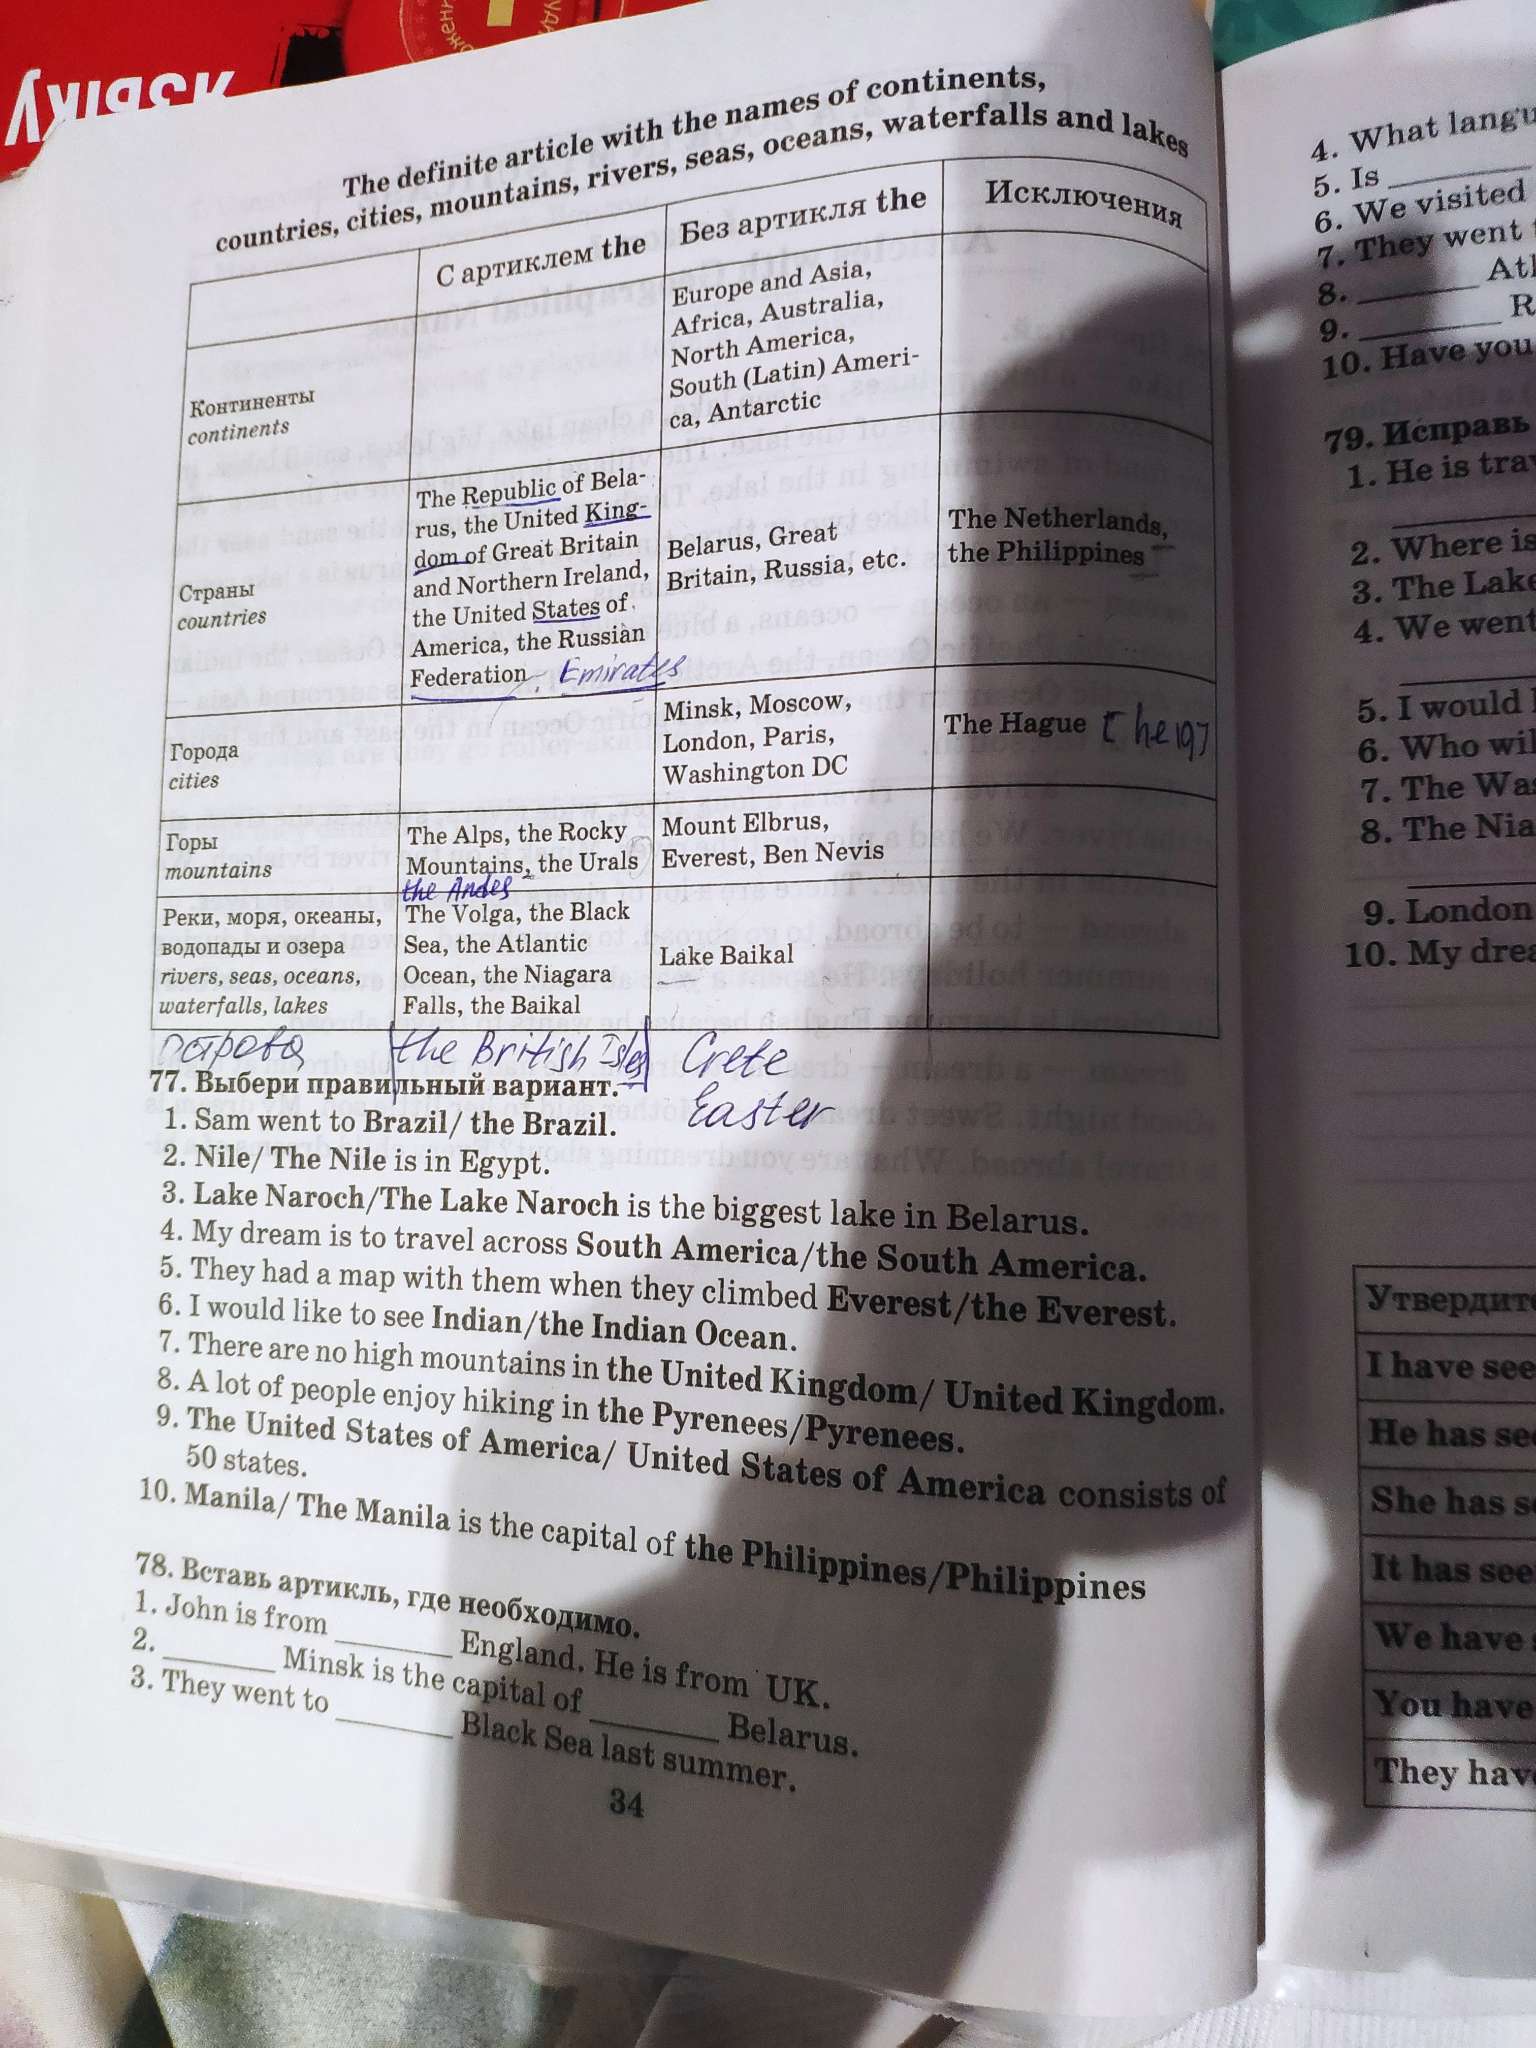 языку
The definite article with the names of continents,
countries, cities, mountains, rivers, seas, oceans, waterfalls and lakes
С артиклем the
Без артикля the
Исключения
Континенты
continents
Europe and Asia,
Africa, Australia,
North America,
South (Latin) Ameri-
ca, Antarctic
Страны
countries
The Republic of Bela-
rus, the United King-
dom of Great Britain
and Northern Ireland,
the United States of
America, the Russian
Federation, Emirates
Belarus, Great
Britain, Russia, etc.
The Netherlands,
the Philippines
Города
cities
Minsk, Moscow,
London, Paris,
Washington DC
The Hague
Горы
mountains
The Alps, the Rocky
Mountains, the Urals
the Andes
Mount Elbrus,
Everest, Ben Nevis
Реки, моря, океаны,
водопады и озера
rivers, seas, oceans,
waterfalls, lakes
The Volga, the Black
Sea, the Atlantic
Ocean, the Niagara
Falls, the Baikal
Lake Baikal
острова
the British Isles
Crete
Easter
77. Выбери правильный вариант.
1. Sam went to Brazil/ the Brazil.
2. Nile/ The Nile is in Egypt.
3. Lake Naroch/The Lake Naroch is the biggest lake in Belarus.
4. My dream is to travel across South America/the South America.
5. They had a map with them when they climbed Everest/the Everest.
6. I would like to see Indian/the Indian Ocean.
7. There are no high mountains in the United Kingdom/ United Kingdom.
8. A lot of people enjoy hiking in the Pyrenees/Pyrenees.
9. The United States of America/ United States of America consists of
50 states.
10. Manila/ The Manila is the capital of the Philippines/Philippines
78. Вставь артикль, где необходимо.
1. John is from ______ England. He is from UK.
2. ______ Minsk is the capital of ______ Belarus.
3. They went to ______ Black Sea last summer.
34
4. What langu
5. Is ______
6. We visited
7. They went t
8. ______ Atl
9. ______ R
10. Have you
79. Исправь
1. He is trav
2. Where is
3. The Lake
4. We went
5. I would l
6. Who wil
7. The Was
8. The Nia
9. London
10. My drea
Утвердите
I have see
He has see
She has se
It has see
We have s
You have
They hav